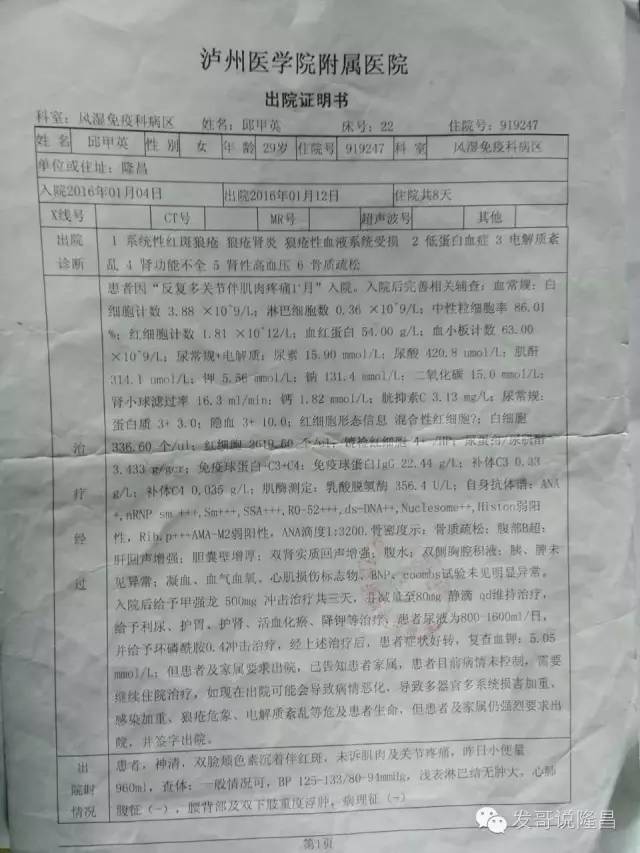 泸州医学院附属医院
出院证明书
科室：风湿免疫科病区 姓名：邱甲英 床号：22 住院号：919247
姓名 邱甲英 性别 女 年龄 29岁 住院号 919247 科室 风湿免疫科病区
单位或住址：隆昌
入院2016年01月04日 出院2016年01月12日 住院共8天
X线号 CT号 MR号 超声波号 其他
出院诊断 1 系统性红斑狼疮 狼疮肾炎 狼疮性血液系统受损 2 低蛋白血症 3 电解质紊
乱 4 肾功能不全 5 肾性高血压 6 骨质疏松
治疗经过
患者因“反复多关节伴肌肉疼痛1+月”入院。入院后完善相关辅查：血常规：白
细胞计数 3.88 ×10^9/L；淋巴细胞数 0.36 ×10^9/L；中性粒细胞率 86.01
%；红细胞计数 1.81 ×10^12/L；血红蛋白 54.00 g/L；血小板计数 63.00
×10^9/L；尿常规+电解质：尿素 15.90 mmol/L；尿酸 420.8 umol/L；肌酐
314.1 umol/L；钾 5.56 mmol/L；钠 131.4 mmol/L；二氧化碳 15.0 mmol/L；
肾小球滤过率 16.3 ml/min；钙 1.82 mmol/L；胱抑素C 3.13 mg/L；尿常规：
蛋白质 3+ 3.0；隐血 3+ 10.0；红细胞形态信息 混合性红细胞?；白细胞
336.60 个/ul；红细胞 2619.60 个/ul；镜检红细胞 4+ /HP；尿蛋白/尿肌酐
3.433 g/gcr；免疫球蛋白+C3+C4：免疫球蛋白IgG 22.44 g/L；补体C3 0.33
g/L；补体C4 0.035 g/L；肌酶测定：乳酸脱氢酶 356.4 U/L；自身抗体谱：ANA
+,nRNP sm +++,Sm+++,SSA+++,RO-52+++,ds-DNA++,Nuclesome++,Histon弱阳
性，Rib.p+++AMA-M2弱阳性，ANA滴度1:3200.骨密度示：骨质疏松；腹部B超：
肝回声增强；胆囊壁增厚；双肾实质回声增强；腹水；双侧胸腔积液；胰、脾未
见异常；凝血、血气血氧、心肌损伤标志物、BNP、coombs试验未见明显异常。
入院后给予甲强龙 500mg 冲击治疗共三天，并减量至80mg 静滴 qd维持治疗，
给予利尿、护胃、护肾、活血化瘀、降钾等治疗、患者尿液为800-1600ml/日，
并给予环磷酰胺0.4冲击治疗，经上述治疗后，患者症状好转，复查血钾：5.05
mmol/L；但患者及家属要求出院，已告知患者家属，患者目前病情未控制，需要
继续住院治疗，如现在出院可能会导致病情恶化，导致多器官多系统损害加重、
感染加重、狼疮危象、电解质紊乱等危及患者生命，但患者及家属仍强烈要求出
院，并签字出院。
出院时情况 患者，神清，双脸颊色素沉着伴红斑，未诉肌肉及关节疼痛，昨日小便量
960ml，查体：一般情况可，BP 125-133/80-94mmHg，浅表淋巴结无肿大，心肺
腹征（-），腰背部及双下肢重度浮肿，病理征（-）
第1页
发哥说隆昌